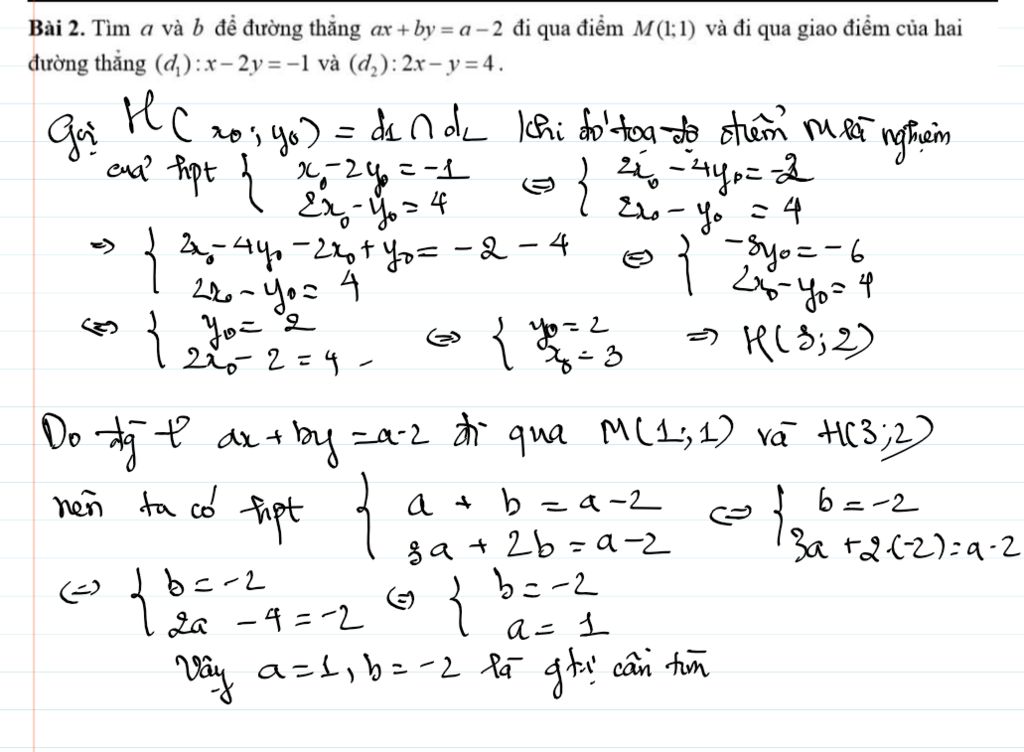 Bài 2. Tìm a và b để đường thẳng ax + by = a − 2 đi qua điểm M(1;1) và đi qua giao điểm của hai
đường thẳng (d₁): x − 2y = −1 và (d₂): 2x − y = 4.
Gọi H(x₀; y₀) = d₁ ∩ d₂ khi đó toạ độ điểm M là nghiệm
của hpt { x₀ − 2y₀ = −1 ⇔ { 2x₀ − 4y₀ = −2
2x₀ − y₀ = 4 2x₀ − y₀ = 4
⇒ { 2x₀ − 4y₀ − 2x₀ + y₀ = −2 − 4 ⇔ { −3y₀ = −6
2x₀ − y₀ = 4 2x₀ − y₀ = 4
⇔ { y₀ = 2 ⇔ { y₀ = 2 ⇒ H(3;2)
2x₀ − 2 = 4 x₀ = 3
Do đg t ax + by = a − 2 đi qua M(1;1) và H(3;2)
nên ta có hpt { a + b = a − 2 ⇔ { b = −2
3a + 2b = a − 2 3a + 2·(−2) = a − 2
⇔ { b = −2 ⇔ { b = −2
2a − 4 = −2 a = 1
Vậy a = 1, b = −2 là gtrị cần tìm